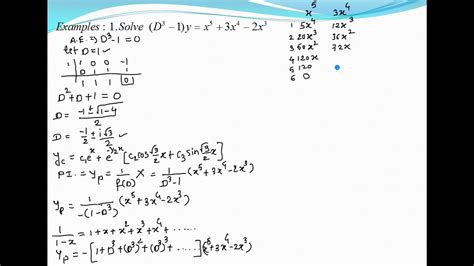 Examples : 1.Solve (D³ −1)y = x⁵ + 3x⁴ − 2x³
A.E.⇒ D³-1=0
let D=1 ✓
1 | 1 0 0 -1
0 1 1 1
1 1 1 | 0
D²+D+1=0
D = -1±√1-4 / 2
D = -1/2 ± i√3/2 ✓
y_c = c₁e^x + e^(-1/2 x) [c₂cos √3/2 x + c₃ sin √3/2 x]
P.I. = y_p = 1/f(D) X = 1/D³-1 (x⁵+3x⁴-2x³)
y_p = 1/-(1-D³) (x⁵+3x⁴-2x³)
1/1-x = 1+x+x²+x³+x⁴+.....
y_p = -[1+D³+(D³)²+(D³)³+.....](x⁵+3x⁴-2x³)
x⁵ 3x⁴
1 5x⁴ 12x³
2 20x³ 36x²
3 60x² 72x
4 120x
5 120
6 0